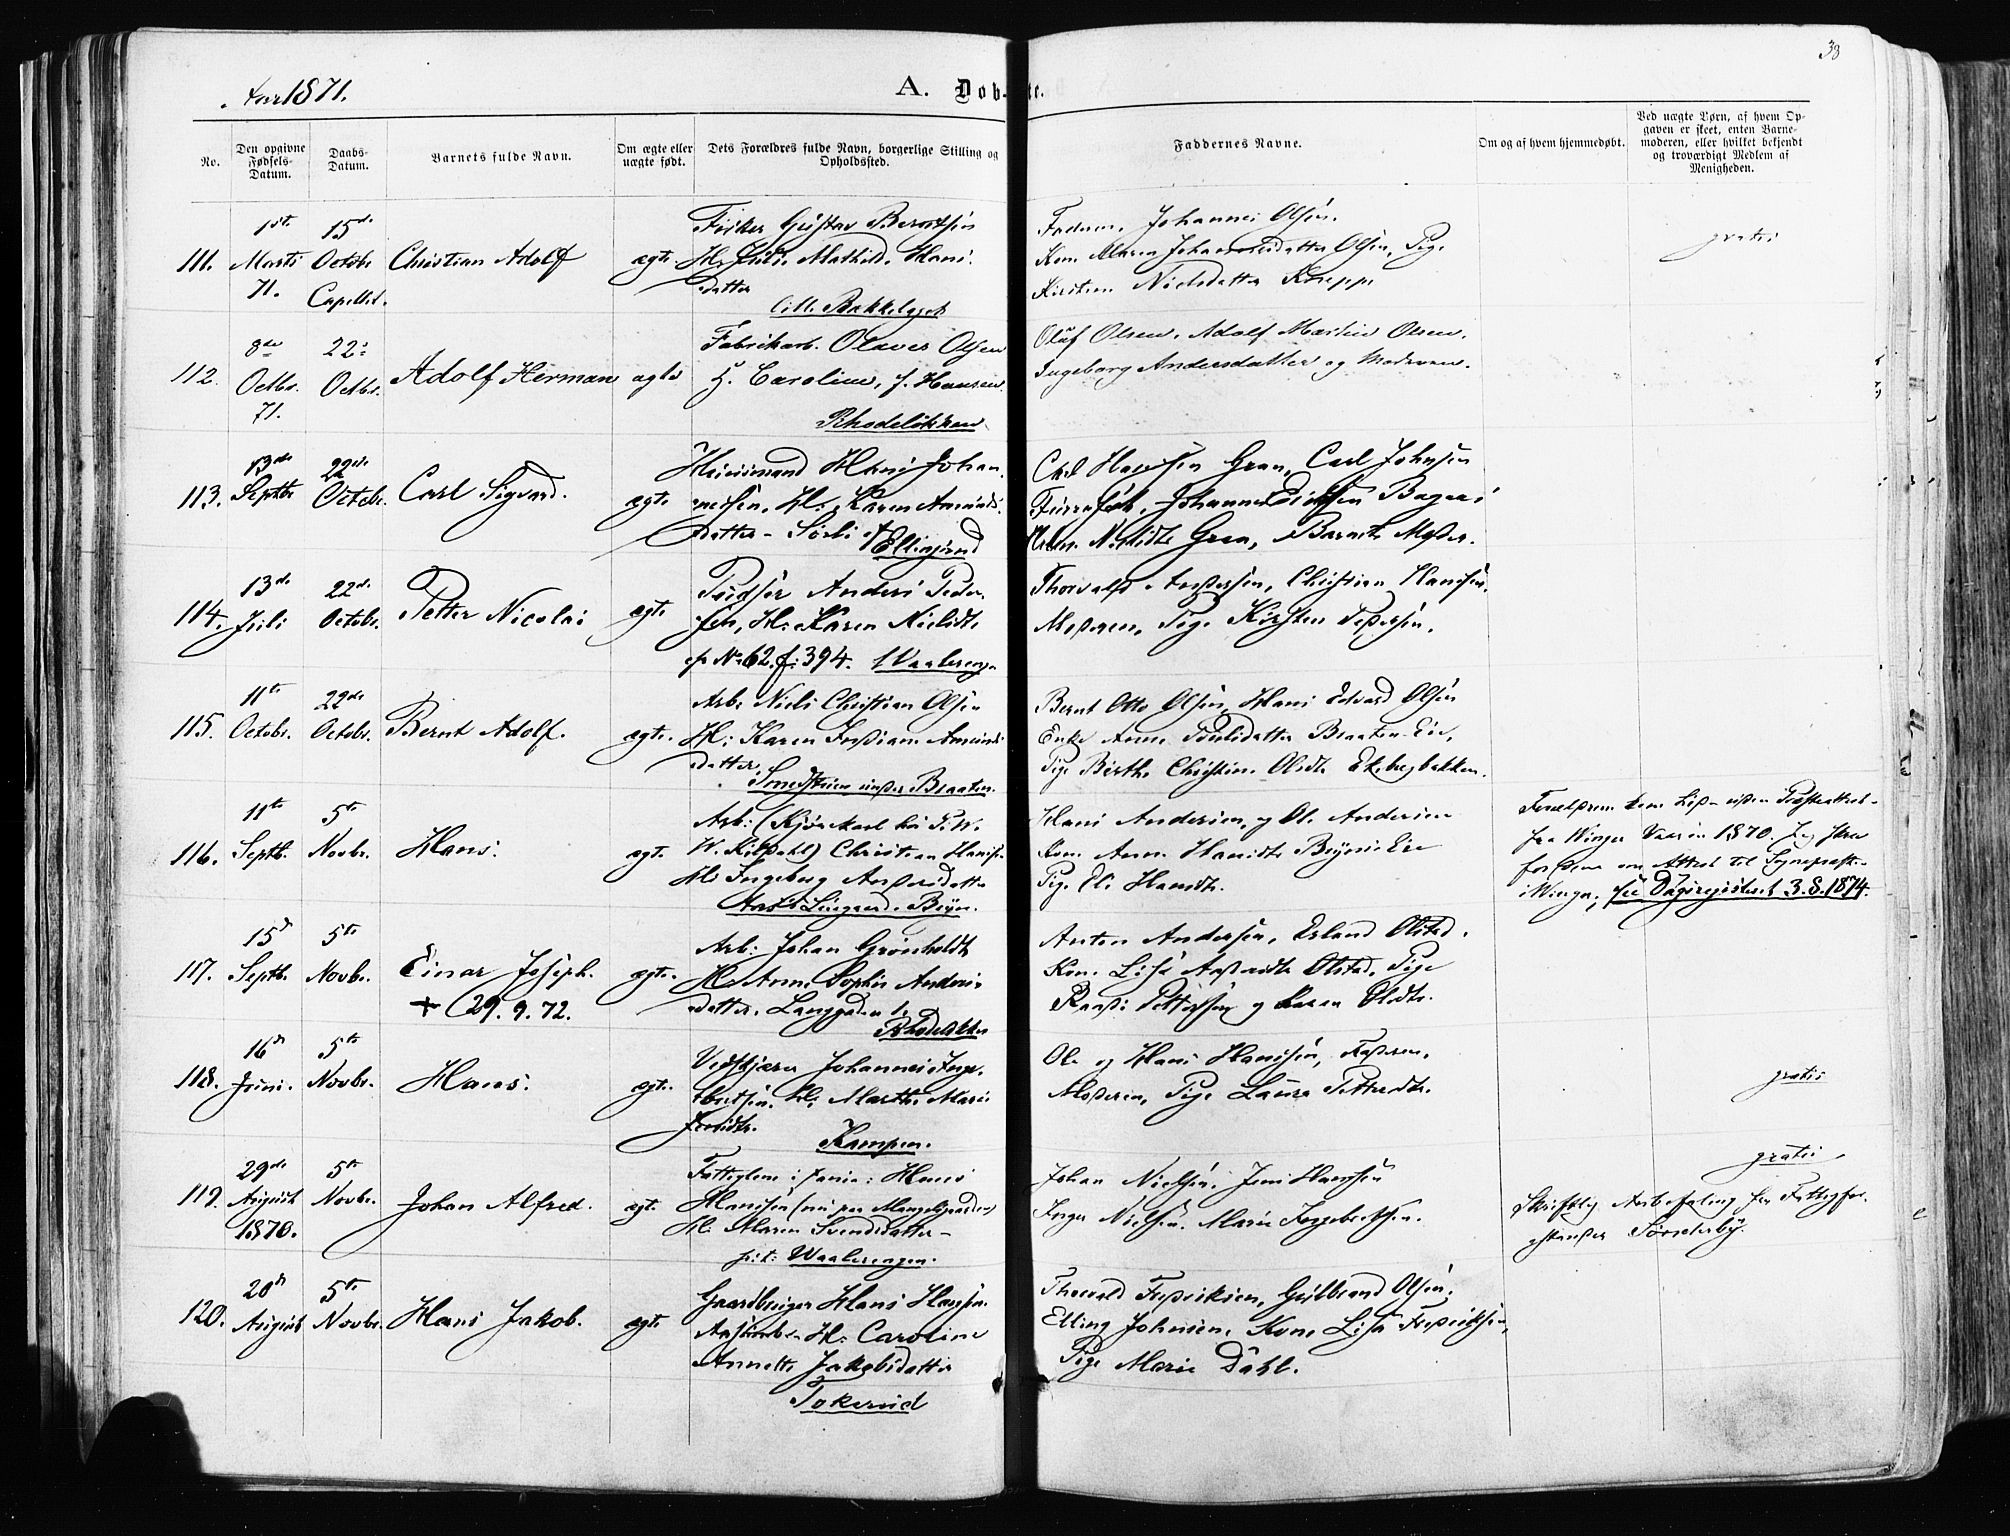 38
Aar 1871.
A. Døb-te.
No.
Den opgivne Fødsels-Datum.
Daabs-Datum.
Barnets fulde Navn.
Om ægte eller uægte født.
Dets Forældres fulde Navn, borgerlige Stilling og Opholdssted.
Faddernes Navne.
Om og af hvem hjemmedøbt.
Ved uægte Børn, af hvem Opgaven er skeet, enten Barnemoderen, eller hvilket bekjendt og troværdigt Medlem af Menigheden.
111.
1ste Marts 71.
15de Octobr. Capellet.
Christian Adolf
ægte.
Fisker Gustav Berntsen
H. Julie Mathilde Hans-
datter
lille Bakkelaget
Faderen, Johannes Olsen.
Kone Maren Johannesdatter Olsen, Pige
Kirsten Nielsdatter
gratis
112.
8de Octbr. 71.
22. Octbr.
Adolf Herman
ægte
Fabrikarb. Olaves Olsen
H. Caroline, f. Hansen
Rhodeløkken
Oluf Olsen, Adolf Martin Olsen.
Ingeborg Andersdatter og Moderen.
113.
13de Septbr.
22de Octobr.
Carl Sigvard.
ægte
Huusmand Hans Johan-
nesen, H: Karen Amunds-
datter - Sørli
Ellingsrud
Carl Hansen Gran, Carl Johnsen
Johannes
Nielsdtr Gran, Barnets Moder.
114.
13de Juli
22de Octobr.
Petter Nicolai
ægte
Pudser Anders Peder-
sen, H: Karen Nielsdtr.
cfr No 62. f: 394. Vaalerengen
Thorvald Andersen, Christian Hansen.
Moderen, Pige Kirsten Pedersen.
115.
11te Octobr.
22de Octobr.
Bernt Adolf.
ægte.
Arb: Niels Christian Olsen
H: Karen Amunds-
datter.
Smedstuen under Braaten.
Bernt Otto Olsen, Hans Edvard Olsen
Enke Anne Poulsdatter Braaten Eie,
Pige Berthe Christine Olsdtr. Ekebergbakken.
116.
11te Septb.
5te Novbr.
Hans.
ægte
Arb: (Kjørekarl hos
W. Kildahl) Christian Hansen
H: Ingeborg Andersdatter
Bryn.
Hans Andersen, og Ole Andersen
Kone Anne Hansdtr Bryns Eie
Pige Eli Hansdtr.
fra Winger 1870.
Attest til Sognepræsten
i Winger, see Dagregisteret 3.8.1874.
117.
15de Septb.
5te Novbr.
Einar Joseph.
+ (29. 9. 72.
ægte.
Arb: Johan Grønholdt
H: Anne Sophie Anders-
datter. Langgaden
Rhodeløkken
Anton Andersen, Erland Olstad.
Kone Lise Andersdtr Olstad, Pige
Pettersen og Karen Olsdtr.
118.
16de Juni.
5te Novbr.
Hans.
ægte.
Johannes Inge-
bertsen. H: Marthe Marie
Kampen.
Ole og Hans Hansen, Faderen,
Moderen, Pige Laura Pettersdtr.
gratis
119.
29de August 1870.
5te Novbr.
Johan Alfred.
ægte.
Fattiglem Hans
Hansen (nu paa Mangelsgaarden)
H: Maren Svendsdatter -
Waalerengen.
Johan Nielsen, Jens Hansen
Inger Nielsen. Marie Ingebretsen.
gratis.
Skriftlig Anbefaling fra Fattigfor-
standер Sønderby.
120.
20de August
5te Novbr.
Hans Jakob.
ægte.
Gaardbruger Hans Hansen
H: Caroline
Annette Jakobsdatter
Tokerud
Thorvald Fredriksen, Gulbrand Olsen,
Elling Johnsen, Kone Lisa Fredriksen,
Pige Marie Dahl.